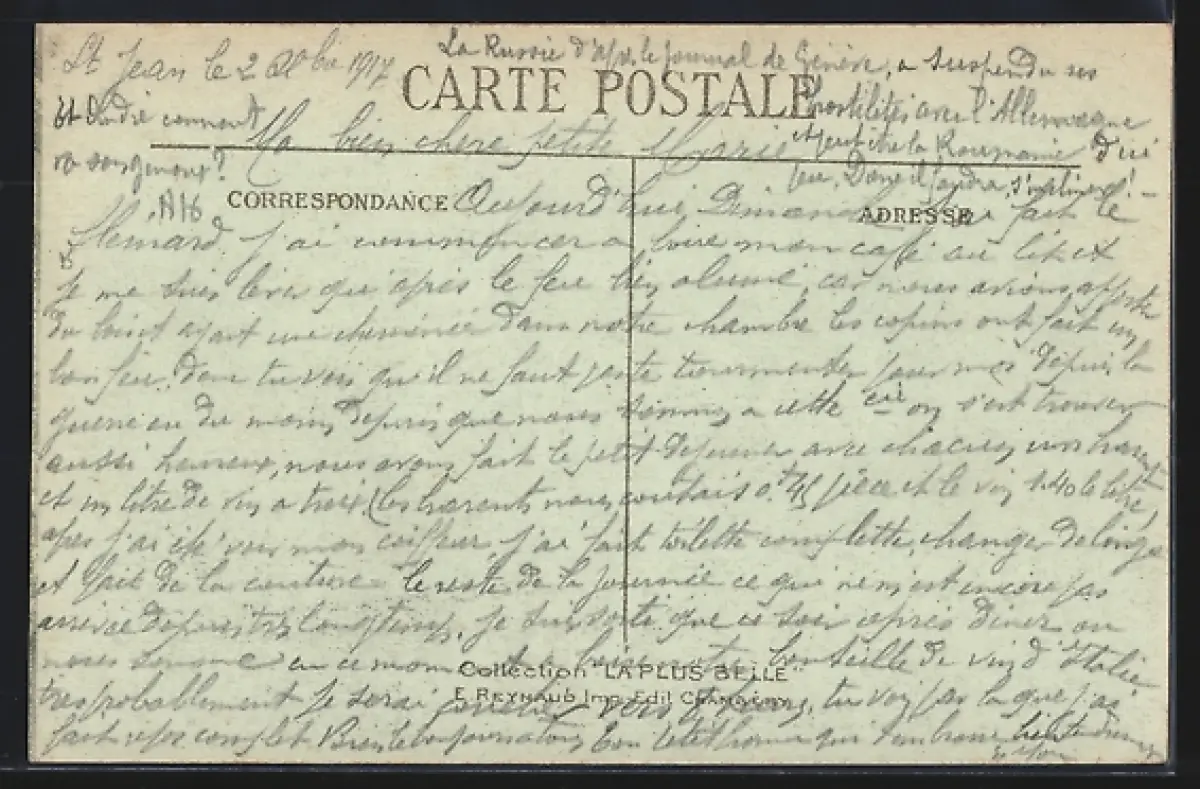 La Russie d'après le journal de Genève, a suspendu ses
St Jean le 2 1917
CARTE POSTALE
hostilités avec l'Allemagne
et André comment
Ma bien chère petite Marie
et peut être la Roumanie d'ici
va son genoux?
peu. Donc il faudra s'
CORRESPONDANCE
Aujourd'hui Dimanche j'ai fait le
ADRESSE
flemard, j'ai commencer a boire mon café au lit et
je me suis lever qu'après le feu bien alumé, car nous avions apporté
du bois et ayant une cheminée dans notre chambre les copins ont fait un
bon feu. Donc tu vois qu'il ne faut pas te tourmenter pour moi depuis la
guerre ou du moins depuis que nous sommes a cette cie on s'est trouver
aussi heureux, nous avons fait le petit déjeuner avec chacun un harent
et un litre de vin a trois (les harents nous coutais 0.45 pièce et le vin 1.40 le litre)
apres j'ai été voir mon coiffeur, j'ai fait toilette complette, changer de linge
et fait de la couture le reste de la journée ce qui ne m'est encore pas
arriver depuis très longtemps. Je suis sorti que ce soir après diner ou
nous sommes en ce moment bouteille de vin d'Italie
Collection "LA PLUS BELLE"
E. REYNAUD Imp. Edit CHAMBÉRY
très probablement je serai tu vois pas la que j'ai
fait repos complet Bien le bonjour a tous Ton petit homme qui t'embrasse bien tendrement